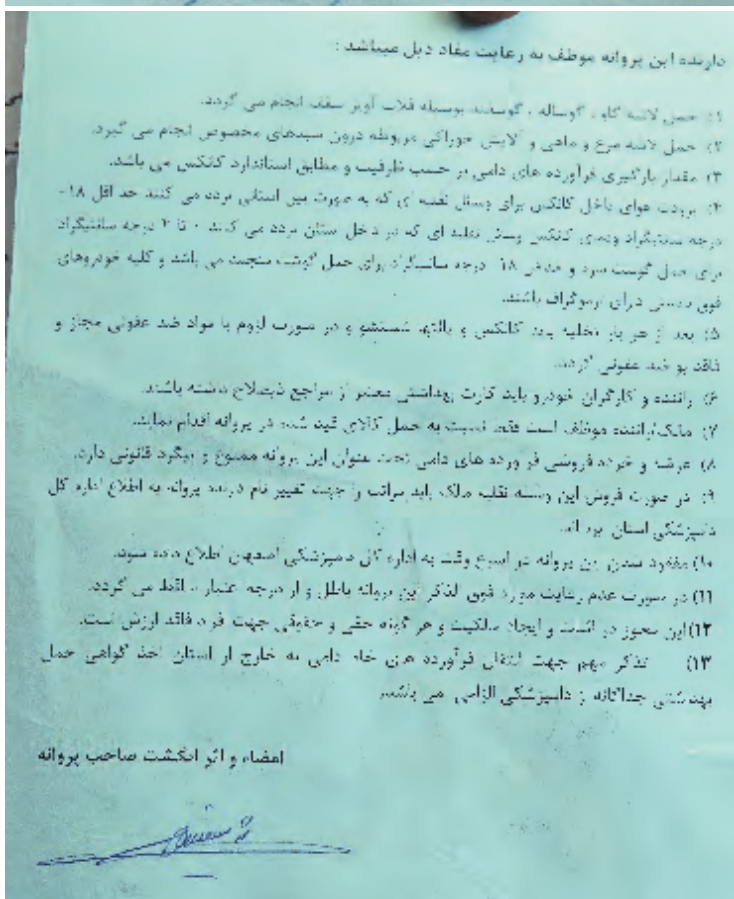 دارنده این پروانه موظف به رعایت مفاد ذیل میباشد :
۱) حمل لاشه گاو ، گوساله ، گوسفند بوسیله قلاب آویز سقف انجام می گردد.
۲) حمل لاشه مرغ و ماهی و آلایش خوراکی مربوطه درون سبدهای مخصوص انجام می گیرد.
۳) مقدار بارگیری فرآورده های دامی بر حسب ظرفیت و مطابق استاندارد کانکس می باشد.
۴) برودت هوای داخل کانکس برای وسائل نقلیه ای که به صورت بین استانی تردد می کنند حداقل ۱۸-
درجه سانتیگراد ودمای کانکس وسائل نقلیه ای که در داخل استان تردد می کنند ۰ تا ۴ درجه سانتیگراد
برای حمل گوشت سرد و ۱۸- درجه سانتیگراد برای حمل گوشت منجمد می باشد و کلیه خودروهای
فوق بایستی دارای ترموگراف باشند.
۵) بعد از هر بار تخلیه باید کانکس و پالتها شستشو و در صورت لزوم با مواد ضد عفونی مجاز و
فاقد بو ضد عفونی گردد.
۶) راننده و کارگران خودرو باید کارت بهداشتی معتبر از مراجع ذیصلاح داشته باشند.
۷) مالک/راننده موظف است فقط نسبت به حمل کالای قید شده در پروانه اقدام نماید.
۸) عرضه و خرده فروشی فرآورده های دامی تحت عنوان این پروانه ممنوع و پیگرد قانونی دارد.
۹) در صورت فروش این وسیله نقلیه مالک باید مراتب را جهت تغییر نام دارنده پروانه به اطلاع اداره کل
دامپزشکی استان برساند.
۱۰) مفقود شدن این پروانه در اسرع وقت به اداره کل دامپزشکی اصفهان اطلاع داده شود.
۱۱) در صورت عدم رعایت موارد فوق الذکر این پروانه باطل و از درجه اعتبار ساقط می گردد.
۱۲) این مجوز در اثبات و ایجاد مالکیت و هر گونه حقی و حقوقی جهت افراد فاقد ارزش است.
۱۳) تذکر مهم جهت انتقال فرآورده های خام دامی به خارج از استان اخذ گواهی حمل
بهداشتی جداگانه از دامپزشکی الزامی می باشد.
امضاء و اثر انگشت صاحب پروانه